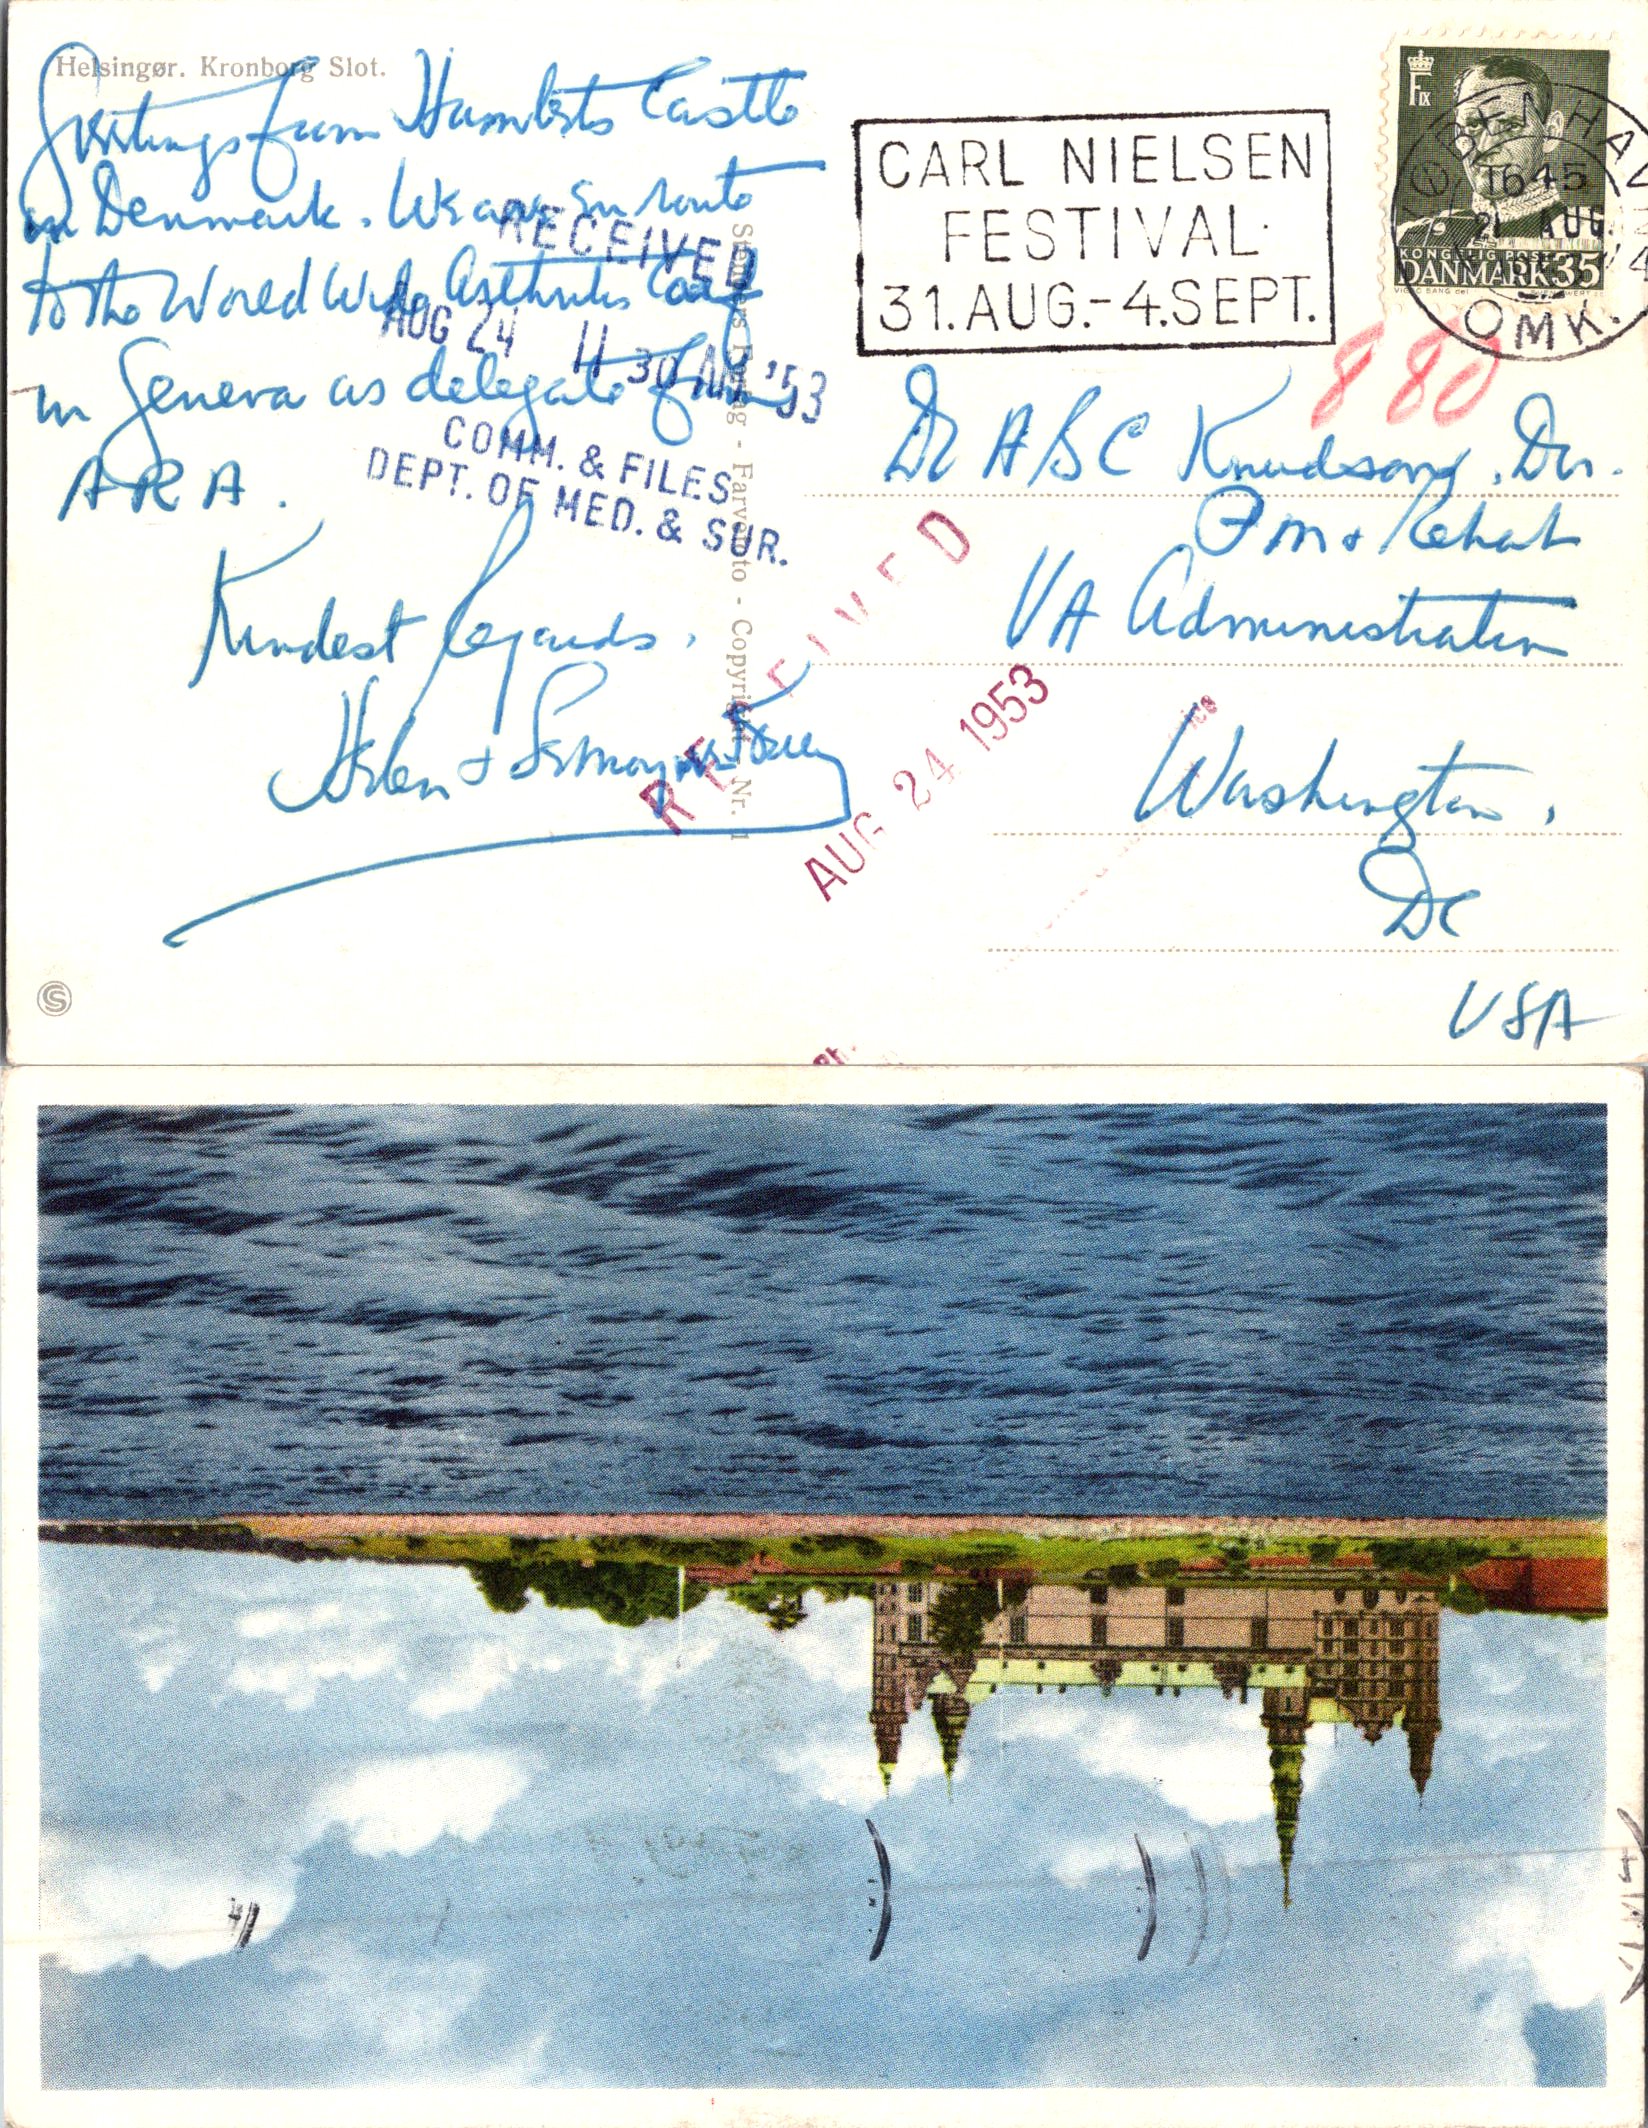 Helsingør. Kronborg Slot.
Greetings from Hamlets Castle
in Denmark. We are en route
to the World Wide Arthritis Conf
in Geneva as delegate from
ARA.
Kindest Regards.
Helen &
RECEIVED
AUG 24 11 30 AM '53
COMM. & FILES
DEPT. OF MED. & SUR.
Stenders Forlag - Farvefoto - Copyright Nr. 1
RECEIVED
AUG 24 1953
CARL NIELSEN
FESTIVAL
31.AUG.-4.SEPT.
KØBENHAVN
1645
21 AUG.
OMK.
F IX
KONGELIG POST
DANMARK 35
880
Dr A B C Knudson, Dir.
P m & Rehab
VA Administration
Washington,
DC
USA